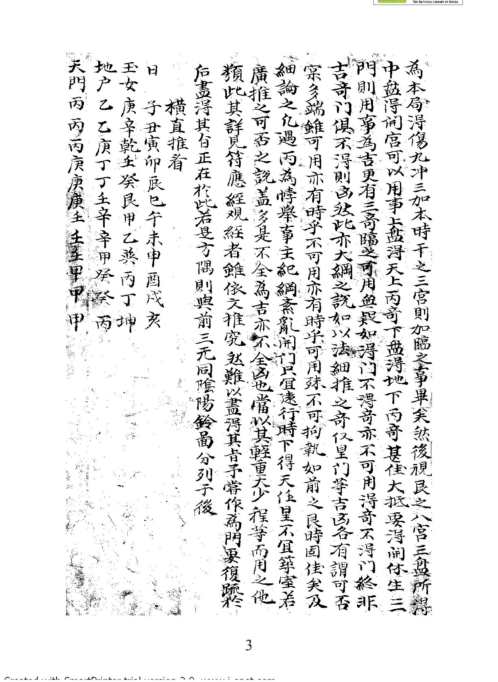 為本局得傷九冲三加本時干之三宮則加臨之事畢矣然後視艮之八宮三盤所得
中盤得開宮可以用事上盤得天上丙奇下盤得地下丙奇甚佳大抵要得開休生三
門則用事為吉更有三奇臨之可用無疑如得門不得奇亦不可用得奇不得門終非
吉奇门俱不得則凶然此亦大綱之說如以法細推之奇仪星门䓁吉凶各有謂可否
宲多端雖可用亦有時乎不可用亦有時乎可用殊不可拘執如前之艮時固佳矣及
細論之凡遇丙為悖舉事主紀綱紊亂開门只宜逺行時下得天任星不宜築室若
廣推之可否之說盖多是不全為吉亦不全凶也當以其軽重大少程等而用之他
類此其詳見符應經观經者雖依文推究然難以盡得其旨予嘗作為門要復䟽於
后盡得其旨正在於此若是方隅則與前三元同隂陽鈴啚分列于後
橫直推看
日 子丑寅卯辰巳午未申酉戌亥
玉女庚辛乾壬癸艮甲乙巽丙丁坤
地户乙乙庚丁丁壬辛辛甲癸癸丙
天門丙丙丙庚庚庚壬壬壬甲甲甲
3
Created with SmartPrinter trial version